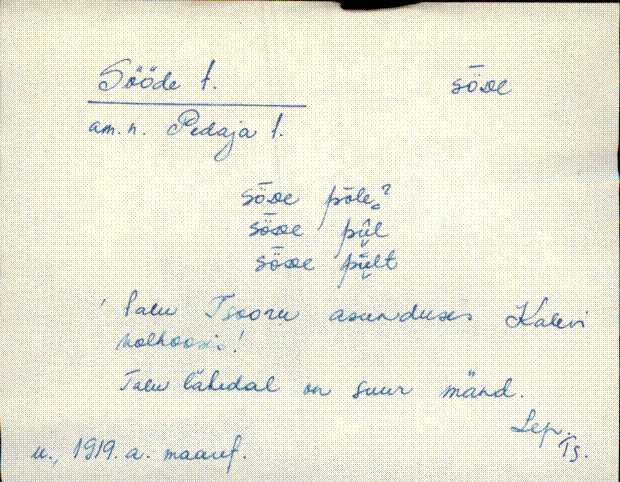 Sööde t. sȫᴅe
am. n. Pedaja t.
sȫᴅe põleˀ
sȫᴅe pı̮i̮l
sȫᴅe pı̮i̮lt
' Talu Tsooru asunduses Kalevi
kolhoosis!
Talu lähedal on suur mänd.
Lep.
u., 1919. a. maaref. Ts.